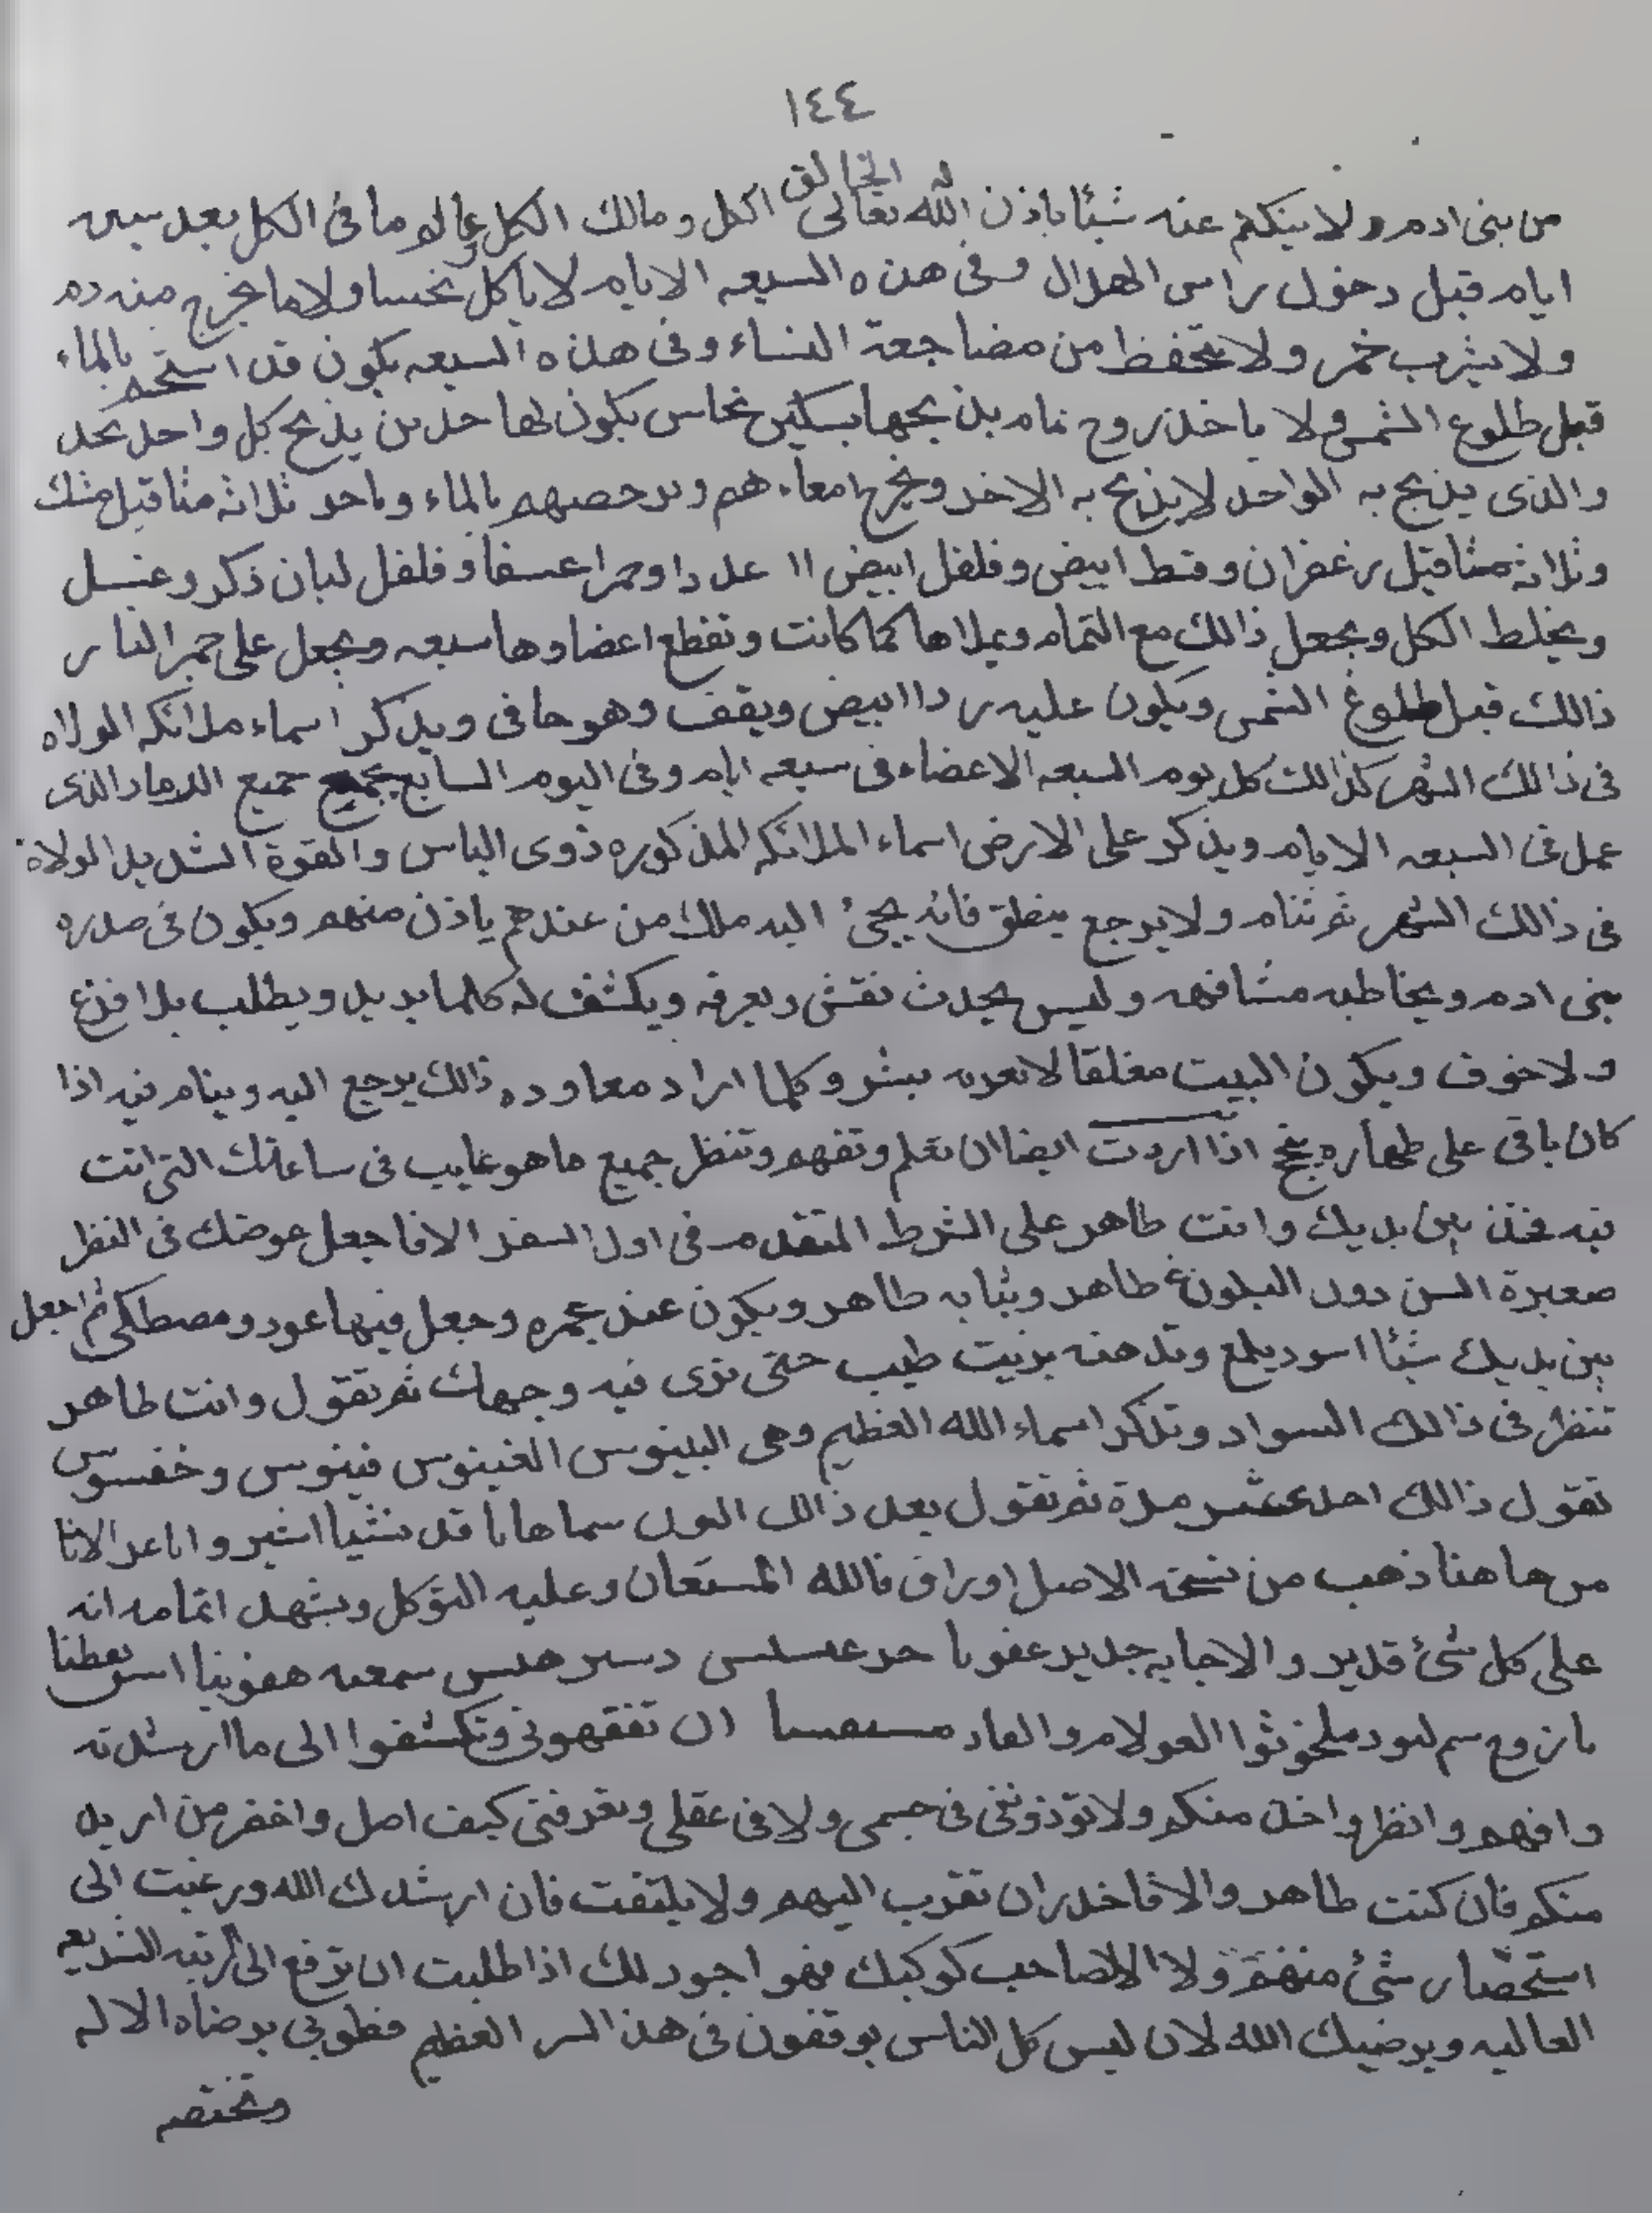 ١٤٤
الخالق
من بنى ادم ولا ينكتم عنه شيئا باذن الله تعالى له الكل ومالك الكل وعالم ما فى الكل بعد سبعه
ايام قبل دخول راس الهلال وفى هذه السبعه الايام لا ياكل نجسا ولا ما يخرج منه دم
ولا يشرب خمر ولا يتحفظ من مضاجعة النساء وفى هذه السبعه يكون قد استحم بالماء
قبل طلوع الشمس ولا ياخذ زوج تمام يذبحها بسكين نحاس يكون لها حدين يذبح كل واحد بحد
والذى يذبح به الواحد لا يذبح به الاخر ويخرج امعاءهم ويرحضهم بالماء وياخذ ثلاثه مثاقيل مسك
وثلاثه مثاقيل زعفران وقسط ابيض وفلفل ابيض ١١ عددا وفلفل لبان ذكر وعسل
ويخلط الكل ويجعل ذالك مع التمام ويملاها كما كانت وتقطع اعضاوها سبعه ويجعل على جمر النار
ذالك قبل طلوع الشمس ويكون عليه ردا ابيض ويقف وهو حافى ويذكر اسماء ملائكه الولاه
فى ذالك الشهر كذالك كل يوم السبعه الاعضاء فى سبعه ايام وفى اليوم السابع يجمع جميع الرماد الذى
عمل فى السبعه الايام ويذكر على الارض اسماء الملائكه المذكوره ذوى الباس والقوة الشديد الولاة
فى ذالك الشهر ثم تنام ولا يرجع ينطق فانه يجئ اليه ملك من عندهم ياذن منهم ويكون فى صدره
بنى ادم ويخاطبه مشافهه وليس يحدث نفسى ويعرفه ويكشف له كلما يريد ويطلب بلا فزع
ولا خوف ويكون البيت مغلقا لا تعرفه بشر وكلما اراد معاوده ذالك يرجع اليه وينام فيه اذا
كان باقى على طهاره اذا اردت ايضا ان تعلم وتفهم وتنظر جميع ما هو غايب فى ساعتك التى انت
فيه فخذ بين يديك وانت طاهر على الشرط المتقدم فى اول السفر الا فاجعل عوضك فى النظر
صغيرة السن دون البلوغ طاهر وثيابه طاهر ويكون عند مجمره وجعل فيها عود ومصطكى ثم اجعل
بين يديك شيئا اسود يلمع وتدهنه بزيت طيب حتى ترى فيه وجهك ثم تقول وانت طاهر
تنظر فى ذالك السواد وتذكر اسماء الله العظيم وهى البينوس الغينوس فينوس وخفسوس
تقول ذالك احد عشر مرة ثم تقول بعد ذالك
من هاهنا ذهب من نسخه الاصل اوراق فالله المستعان وعليه التوكل ويشهد اتمامه انه
على كل شئ قدير والاجابه جدير
ان تفقهونى وتكشفوا الى ما ارشدته
وافهم وانظر واخذ منكم ولا توذوننى فى جسمى ولا فى عقلى وتعرفنى كيف اصل واخفر من اريد
منكم فان كنت طاهر والا فاحذر ان تقرب اليهم ولا يلتفت فان ارشدك الله ورغبت الى
استحضار شئ منهم ولا الا لصاحب كوكبك فهو اجود لك اذا طلبت ان ترفع الى الرتبه الشريعه
العاليه ويرضيك الله لان ليس كل الناس يوقفون فى هذا السر العظيم فطوبى برضاه الاله
وتختصه